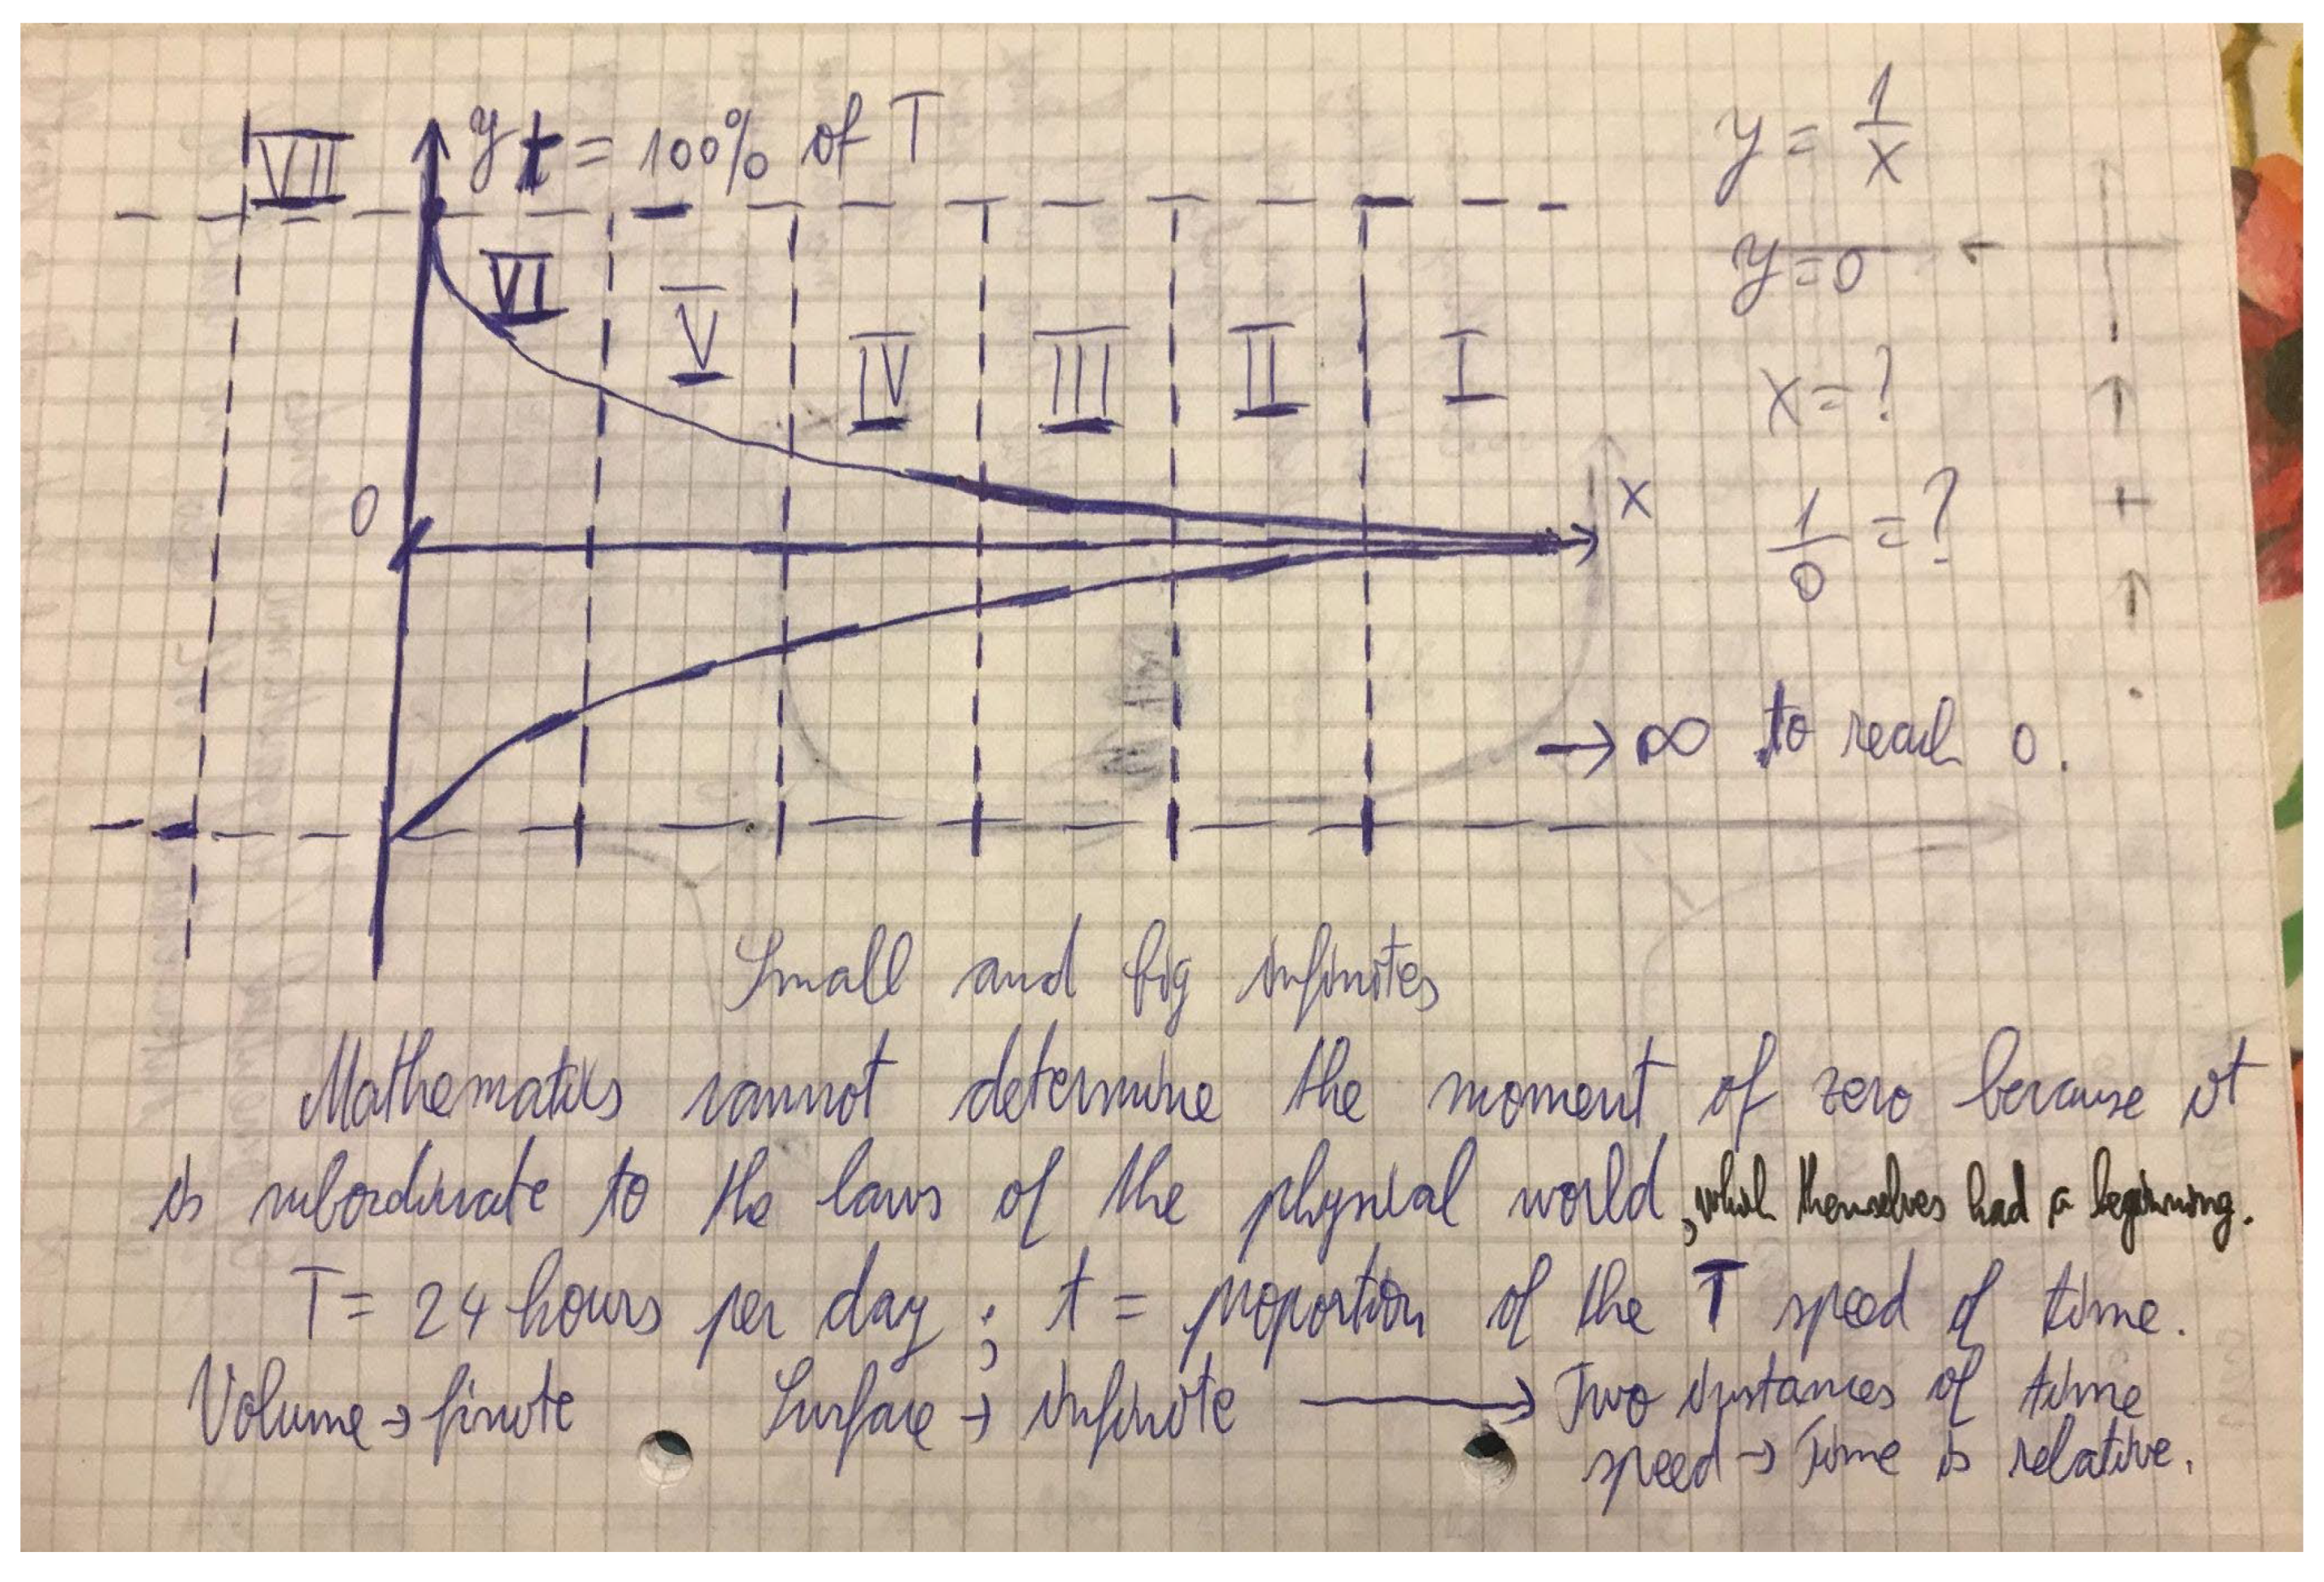 VII
y t = 100% of T
VI
V
IV
III
II
I
0
x
y = 1/x
y = 0
x = ?
1/0 = ?
→ ∞ to reach 0.
Small and big infinites
Mathematics cannot determine the moment of zero because it
is subordinate to the laws of the physical world, which themselves had a beginning.
T = 24 hours per day ; t = proportion of the T speed of time.
Volume → finite Surface → infinite → Two instances of time
speed → Time is relative.